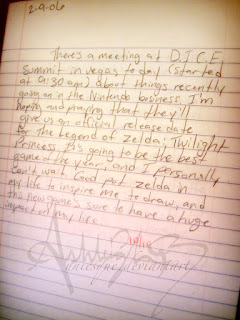 2-9-06
There's a meeting at D.I.C.E.
Summit in Vegas today (started
at 9:30 am) about things recently
going on in the Nintendo business. I'm
hoping and praying that they'll
give us an official release date
for The Legend of Zelda: Twilight
Princess. It's going to be the best
game of the year, and I personally
can't wait. God put Zelda in
my life to inspire me to draw, and
this new game's sure to have a huge
impact on my life.